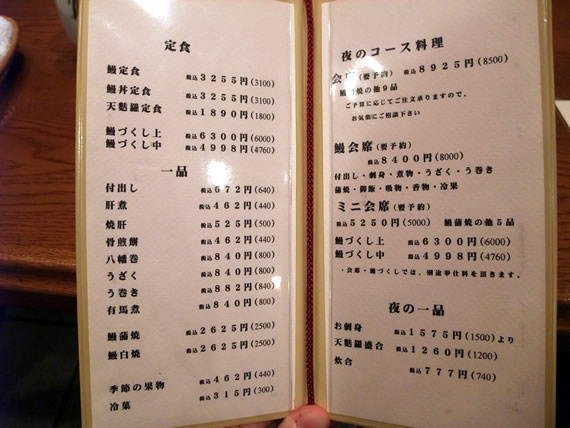 定食
鰻定食 税込3255円(3100)
鰻丼定食 税込3255円(3100)
天麩羅定食 税込1890円(1800)
鰻づくし上 税込6300円(6000)
鰻づくし中 税込4998円(4760)
一品
付出し 税込672円(640)
肝煮 税込462円(440)
焼肝 税込525円(500)
骨煎餅 税込462円(440)
八幡巻 税込840円(800)
うざく 税込840円(800)
う巻き 税込882円(840)
有馬煮 税込840円(800)
鰻蒲焼 税込2625円(2500)
鰻白焼 税込2625円(2500)
季節の果物 税込462円(440)
冷菓 税込315円(300)
夜のコース料理
会席(要予約) 税込8925円(8500)
鰻蒲焼の他9品
ご予算に応じてご注文承りますので、
お気楽にご相談下さい
鰻会席(要予約)
税込8400円(8000)
付出し・刺身・煮物・うざく・う巻き
蒲焼・御飯・吸物・香物・冷菓
ミニ会席(要予約)
税込5250円(5000) 鰻蒲焼の他5品
鰻づくし上 税込6300円(6000)
鰻づくし中 税込4998円(4760)
・会席・鰻づくしでは、別途奉仕料を頂きます。
夜の一品
お刺身 税込1575円(1500)より
天麩羅盛合 税込1260円(1200)
炊合 税込777円(740)